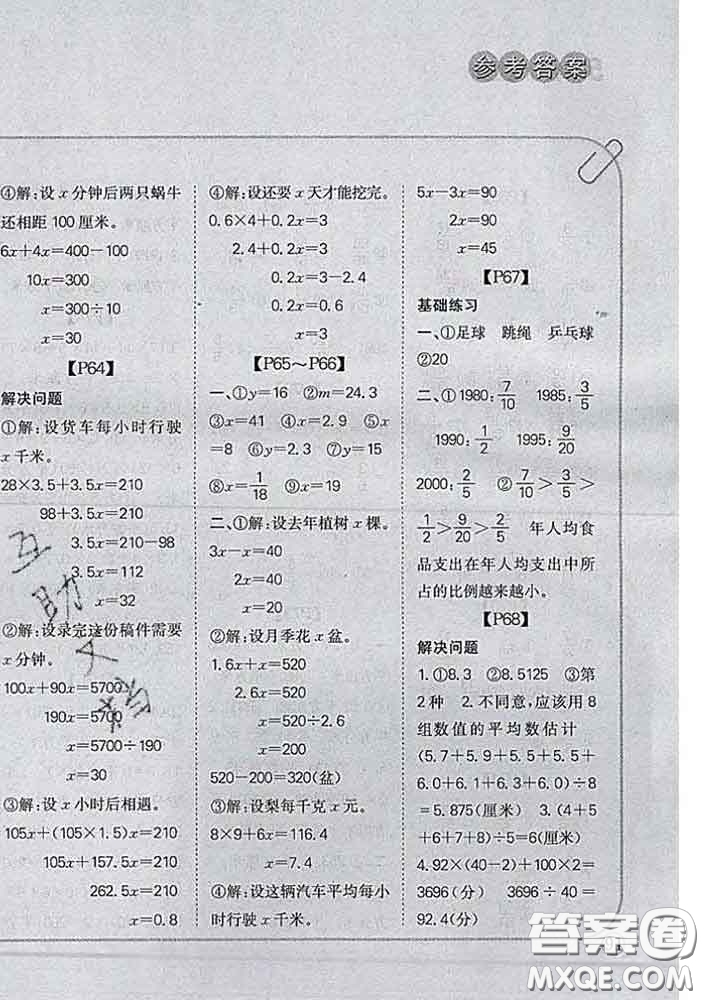 参考答案
④解:设x分钟后两只蜗牛
还相距100厘米。
6x+4x=400-100
10x=300
x=300÷10
x=30
【P64】
解决问题
①解:设货车每小时行驶
x千米。
28×3.5+3.5x=210
98+3.5x=210
3.5x=210-98
3.5x=112
x=32
②解:设录完这份稿件需要
x分钟。
100x+90x=5700
190x=5700
x=5700÷190
x=30
③解:设x小时后相遇。
105x+(105×1.5)x=210
105x+157.5x=210
262.5x=210
x=0.8
④解:设还要x天才能挖完。
0.6×4+0.2x=3
2.4+0.2x=3
0.2x=3-2.4
0.2x=0.6
x=3
【P65～P66】
一、①y=16 ②m=24.3
③x=41 ④x=2.9 ⑤x
=8 ⑥y=2 ⑦y=15
⑧x=1/18 ⑨x=19
二、①解:设去年植树x棵。
3x-x=40
2x=40
x=20
②解:设月季花x盆。
1.6x+x=520
2.6x=520
x=520÷2.6
x=200
520-200=320(盆)
③解:设梨每千克x元。
8×9+6x=116.4
x=7.4
④解:设这辆汽车平均每小
时行驶x千米。
5x-3x=90
2x=90
x=45
【P67】
基础练习
一、①足球 跳绳 乒乓球
②20
二、①1980:7/10 1985:3/5
1990:1/2 1995:9/20
2000:2/5 ②7/10>3/5>
1/2>9/20>2/5 年人均食
品支出在年人均支出中所
占的比例越来越小。
【P68】
解决问题
1.①8.3 ②8.5125 ③第
2种 2.不同意,应该用8
组数值的平均数估计
(5.7+5.9+5.5+5.6+
6.0+6.1+6.3+5.9)÷8
=5.875(厘米) 3.(4+5
+6+7+8)÷5=6(厘米)
4.92×(40-2)+100×2=
3696(分) 3696÷40=
92.4(分)
互
助
文
档
答案圈
MXQE.COM